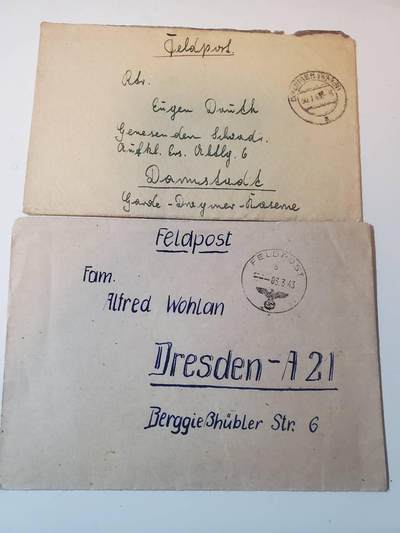 Feldpost.
Rtr.
Eugen Dauth
Genesenden Schwadr.
Aufkl. Ers. Abtlg. 6
Darmstadt
Garde-Dragoner-Kaserne
Feldpost
FELDPOST
b
03.3.43
Fam.
Alfred Wohlan
Dresden-A 21
Berggießhübler Str. 6